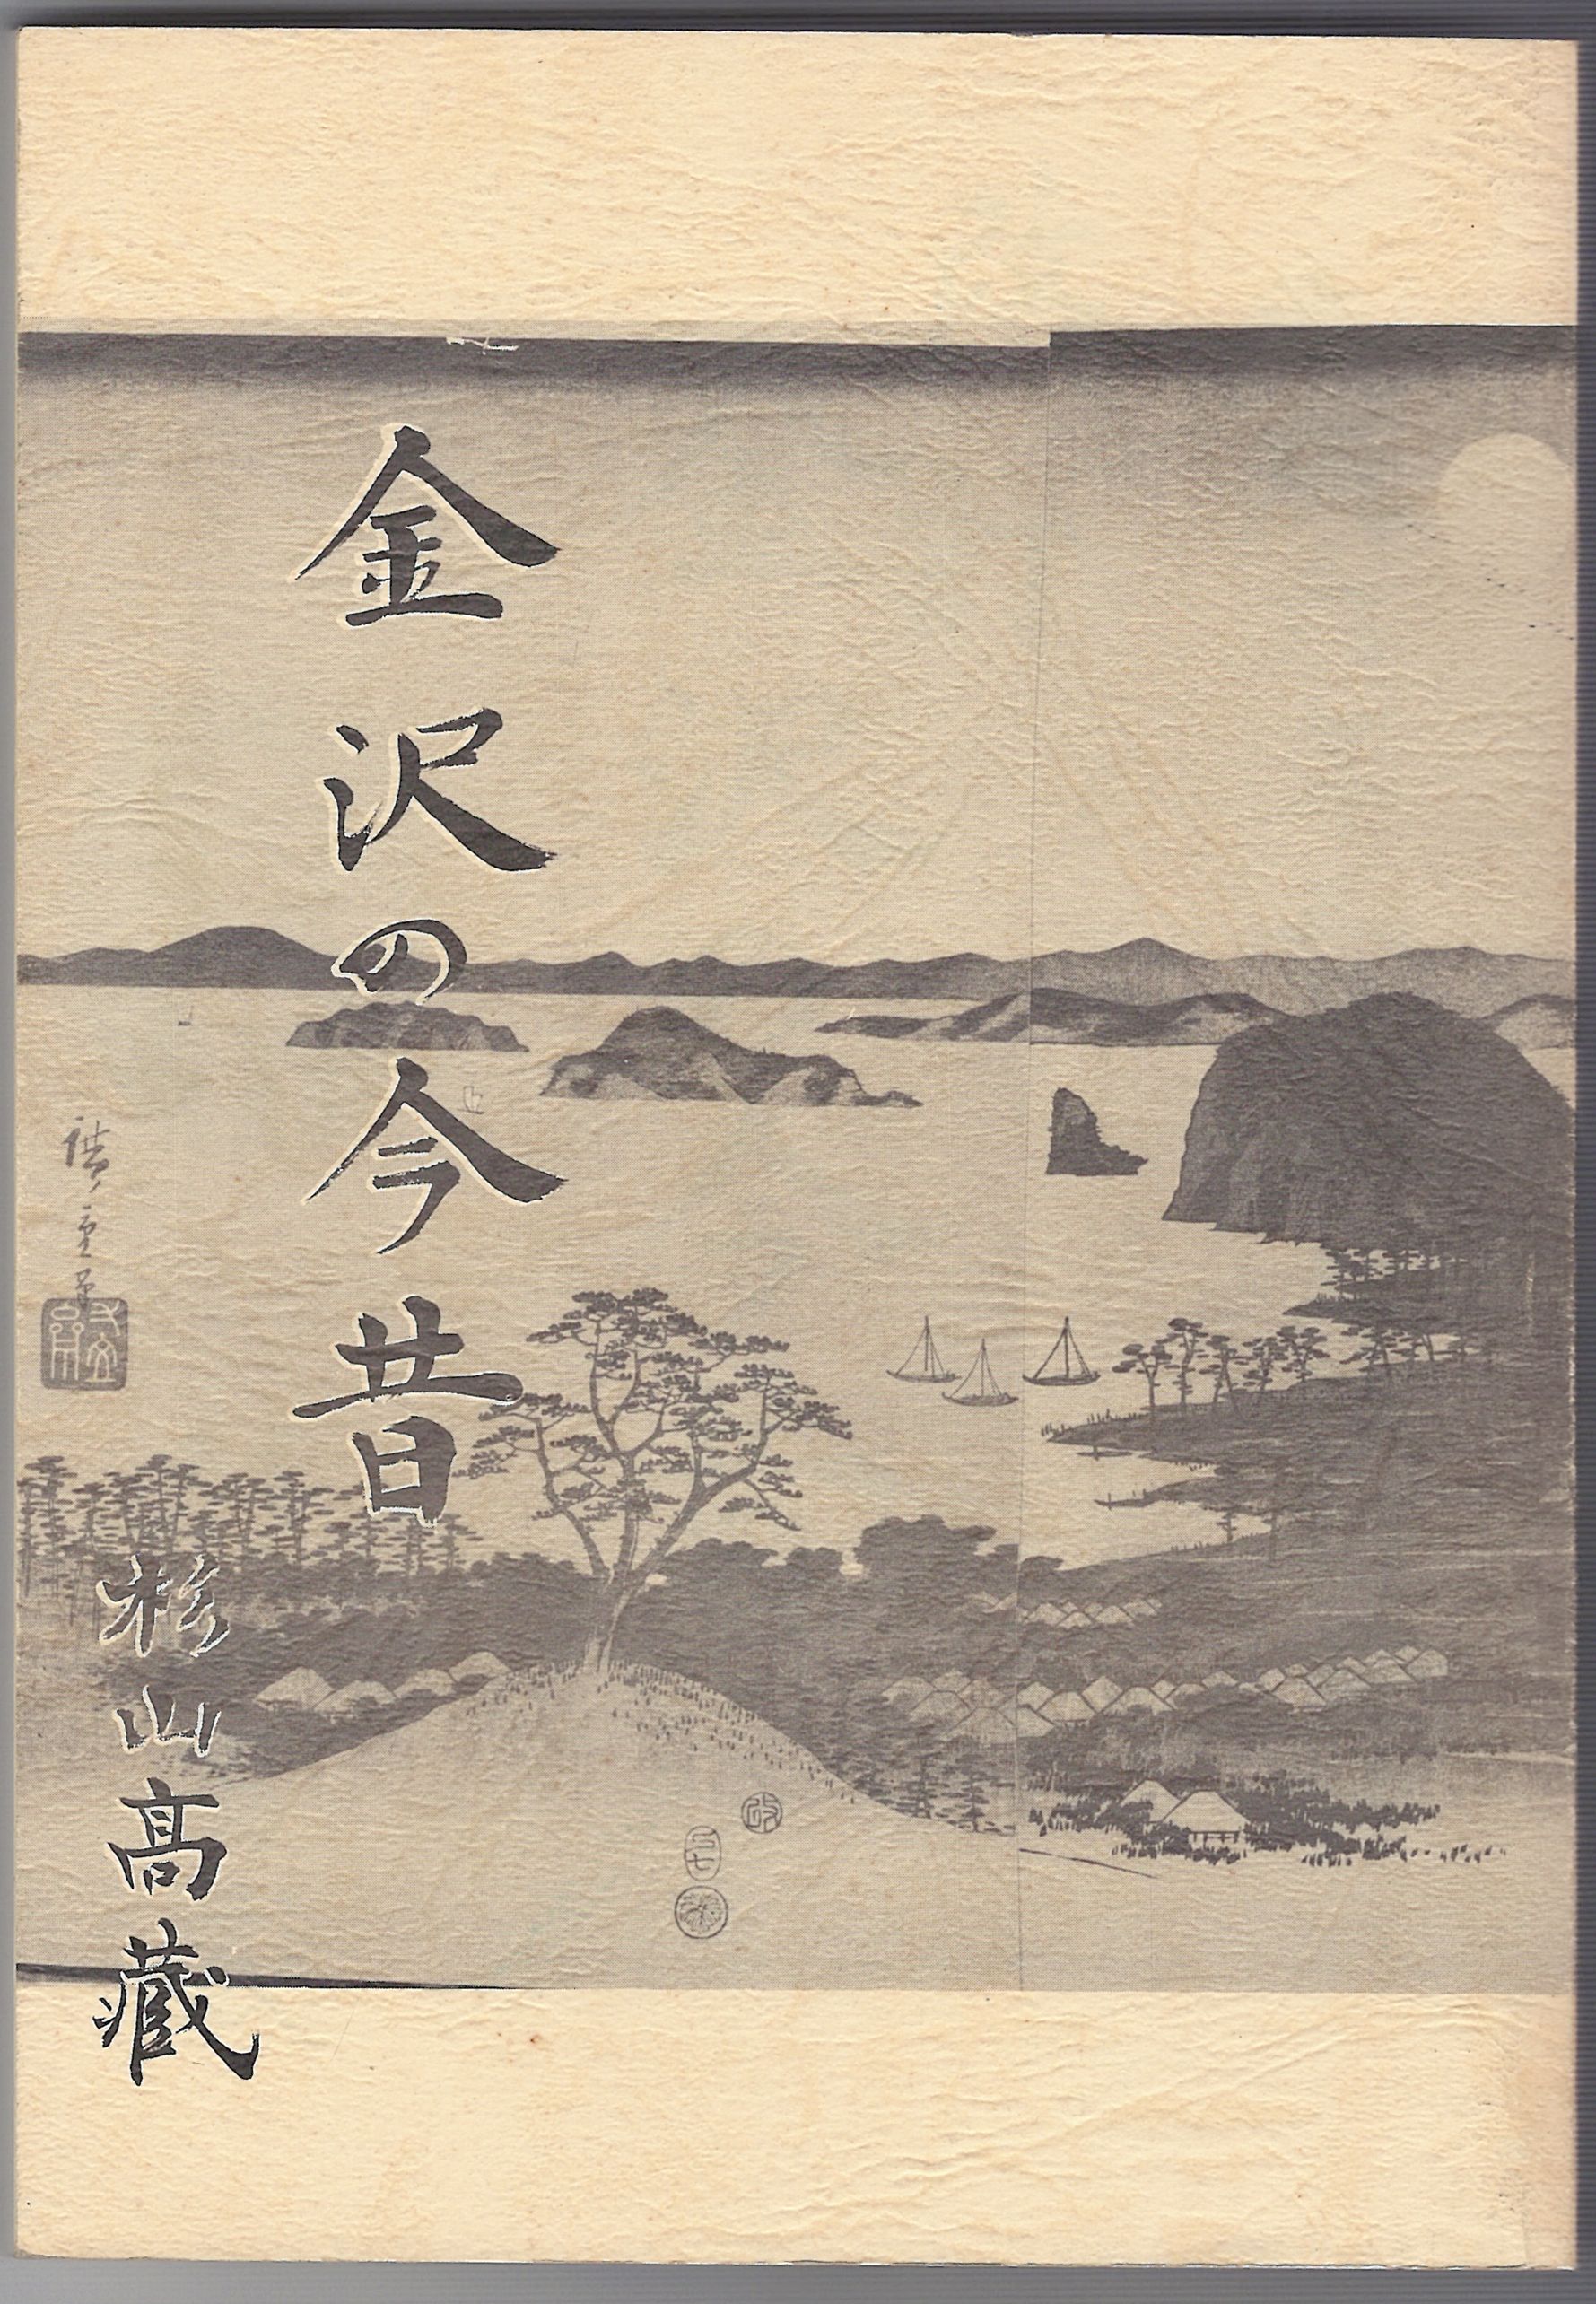 金沢の今昔
杉山高藏
廣重筆